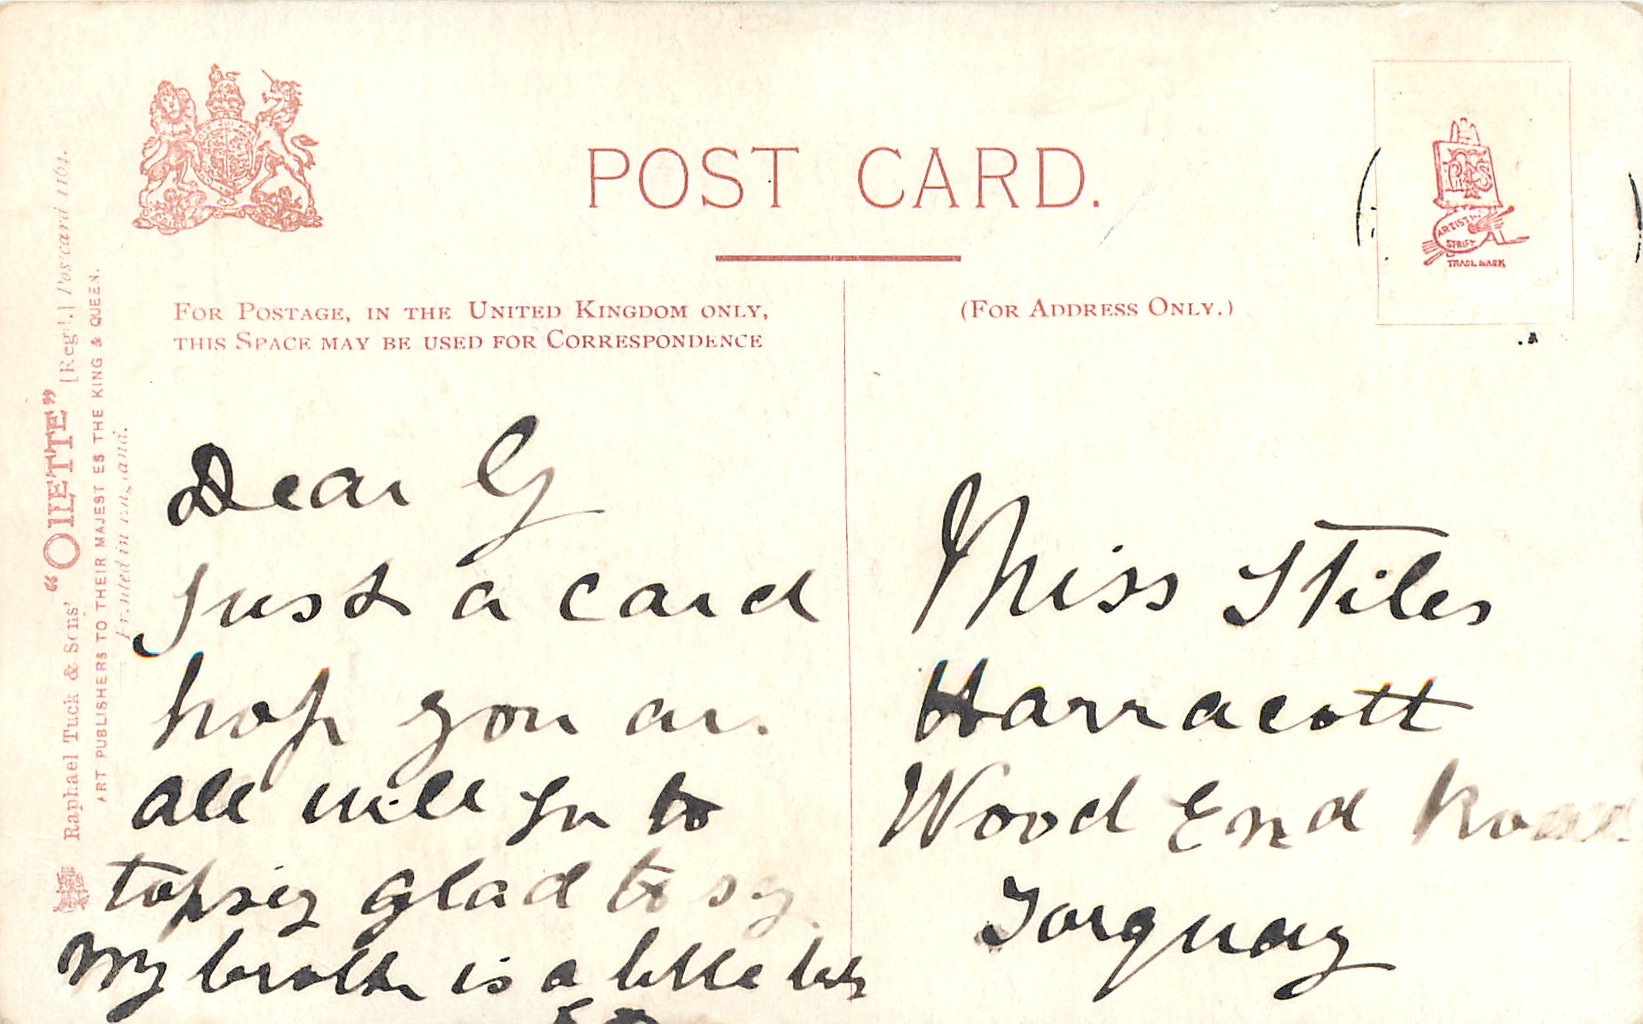 POST CARD.
FOR POSTAGE, IN THE UNITED KINGDOM ONLY,
THIS SPACE MAY BE USED FOR CORRESPONDENCE
(FOR ADDRESS ONLY.)
ARTISTIC
TRADE MARK
Raphael Tuck & Sons' "OILETTE" [Regd.] Postcard 1161.
ART PUBLISHERS TO THEIR MAJESTIES THE KING & QUEEN.
Printed in England.
Dear G
Just a card
hop you are
all well
topsiy glad to sy
My brother is a little
Miss Stiles
Harracott
Wood End Road
Torquay